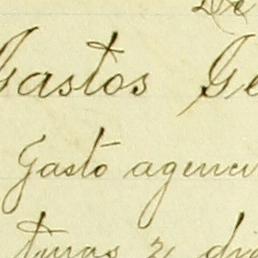 De
Gastos Ge
Gasto agenci
turas y di